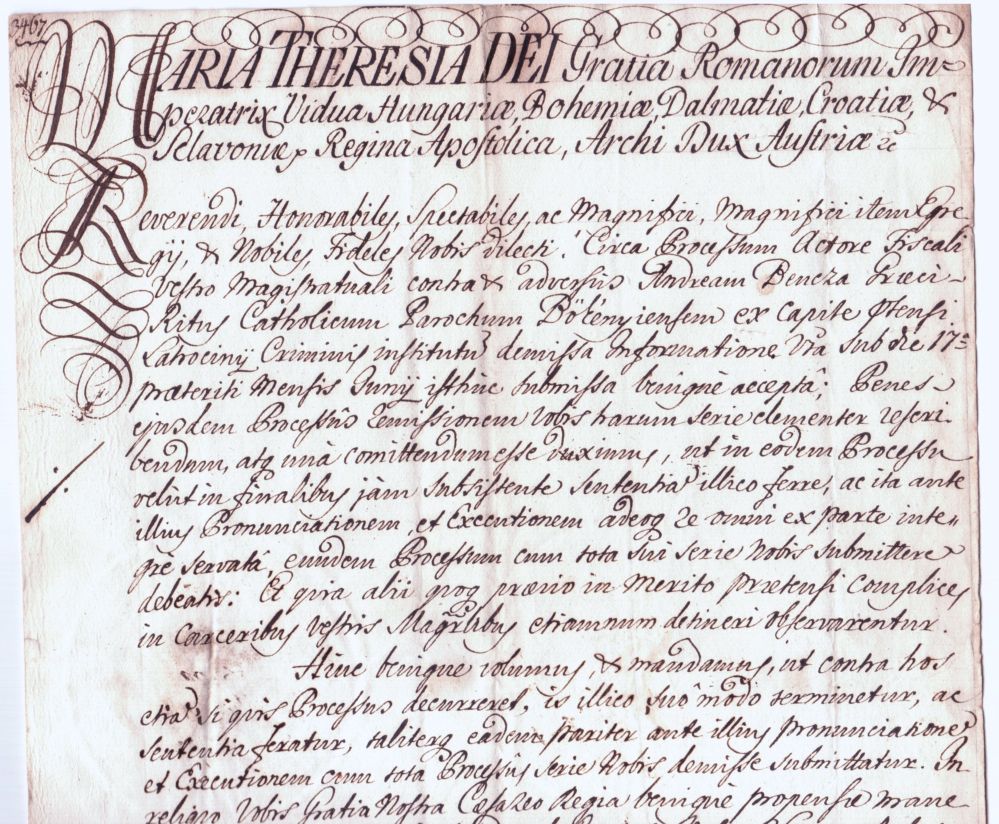 3467
MARIA THERESIA DEI Gratia Romanorum Im=
peratrix Vidua Hungariæ, Bohemiæ, Dalmatiæ, Croatiæ, &
Sclavoniæ Regina Apostolica, Archi Dux Austriæ
Reverendi, Honorabiles, Spectabiles, ac Magnifici, Magnifici item Egre-
gij, & Nobiles, Fideles Nobis dilecti! Circa Processum Actore Fiscali
Vestro Magistratuali contra & adversus Andream Bencza Græci-
Ritus Catholicum Parochum Bökényiensem ex Capite
Latrocinij Criminis institutũ demissa Informatione Vrã sub die 17ª
præteriti Mensis Junij isthuc submissa benignè acceptâ; Penes
ejusdem Processûs remissionem Vobis harum serie clementer rescri-
bendum, atq unà comittendum esse duximus, ut in eodem Processu
velut in finalibus jàm subsistente Sententiã illico ferre, ac ita ante
illius Pronunciationem, et Executionem adeoq re omni ex parte inte=
gre servatâ, eundem Processum cum tota sui serie Nobis submittere
debeatis: Et quia alii quoq prævio in Merito prætensi Complices
in Carceribus Vestris Magrlibus etiamnum detineri observarentur.
Hinc benigne volumus, & mandamus, ut contra hos
etiã si quis Processus decurreret, is illico suô modo terminetur, ac
Sententia feratur, taliterq eadem pariter ante illius Pronunciationẽ
et Executionem cum tota Processûs serie Nobis demisse submittatur. In
reliquo Vobis Gratia Nostra Cæsareo Regia benignè propensæ mane